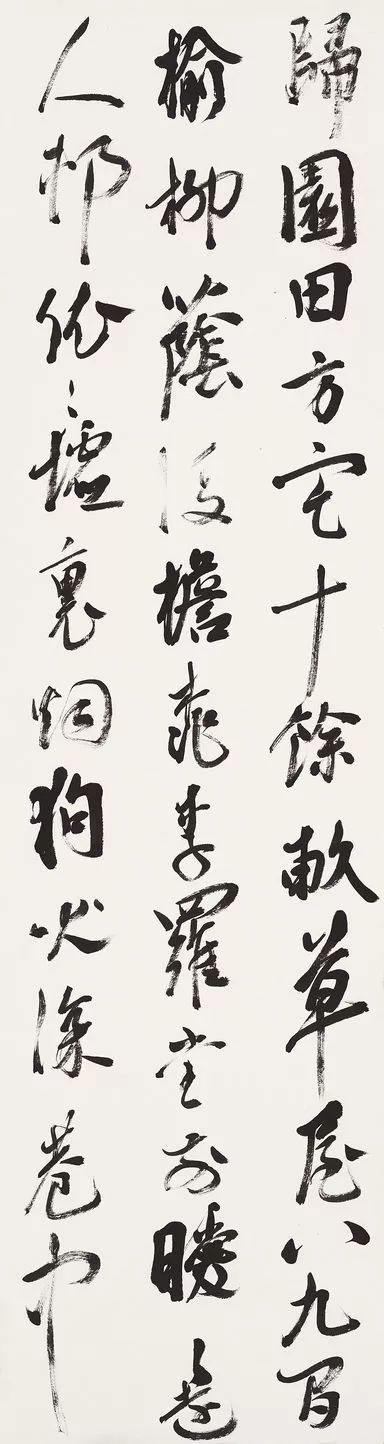 歸園田方宅十餘畝草屋八九間
榆柳蔭後檐桃李羅堂前曖〻遠
人邨依〻墟裏烟狗吠深巷中